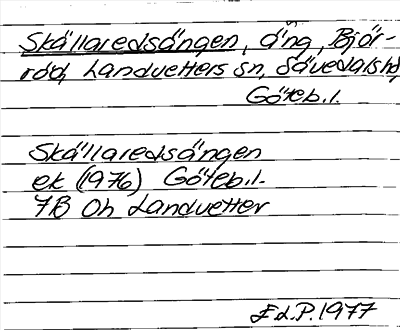 Skällaredsängen, äng, Björ-
röd, Landvetters sn, Sävedals hd,
Göteb.l.
Skällaredsängen
ek (1976) Göteb.l.
7B 0h Landvetter
E d.P. 1977